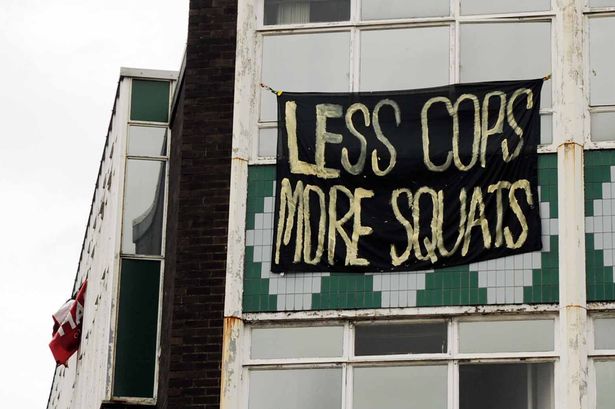 LESS COPS
MORE SQUATS